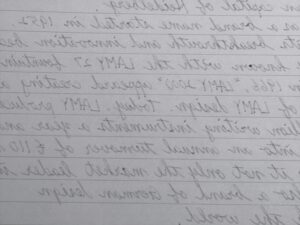 capital of Heidelberg.
as a brand name started in 1952.
breakthrough and innovation
known with the LAMY 27 fountain
in 1966, "LAMY 2000" appeared creating
of LAMY design. Today, LAMY
writing instruments a year
an annual turnover of € 110
it not only the market leader in
a brand of German design
the world.